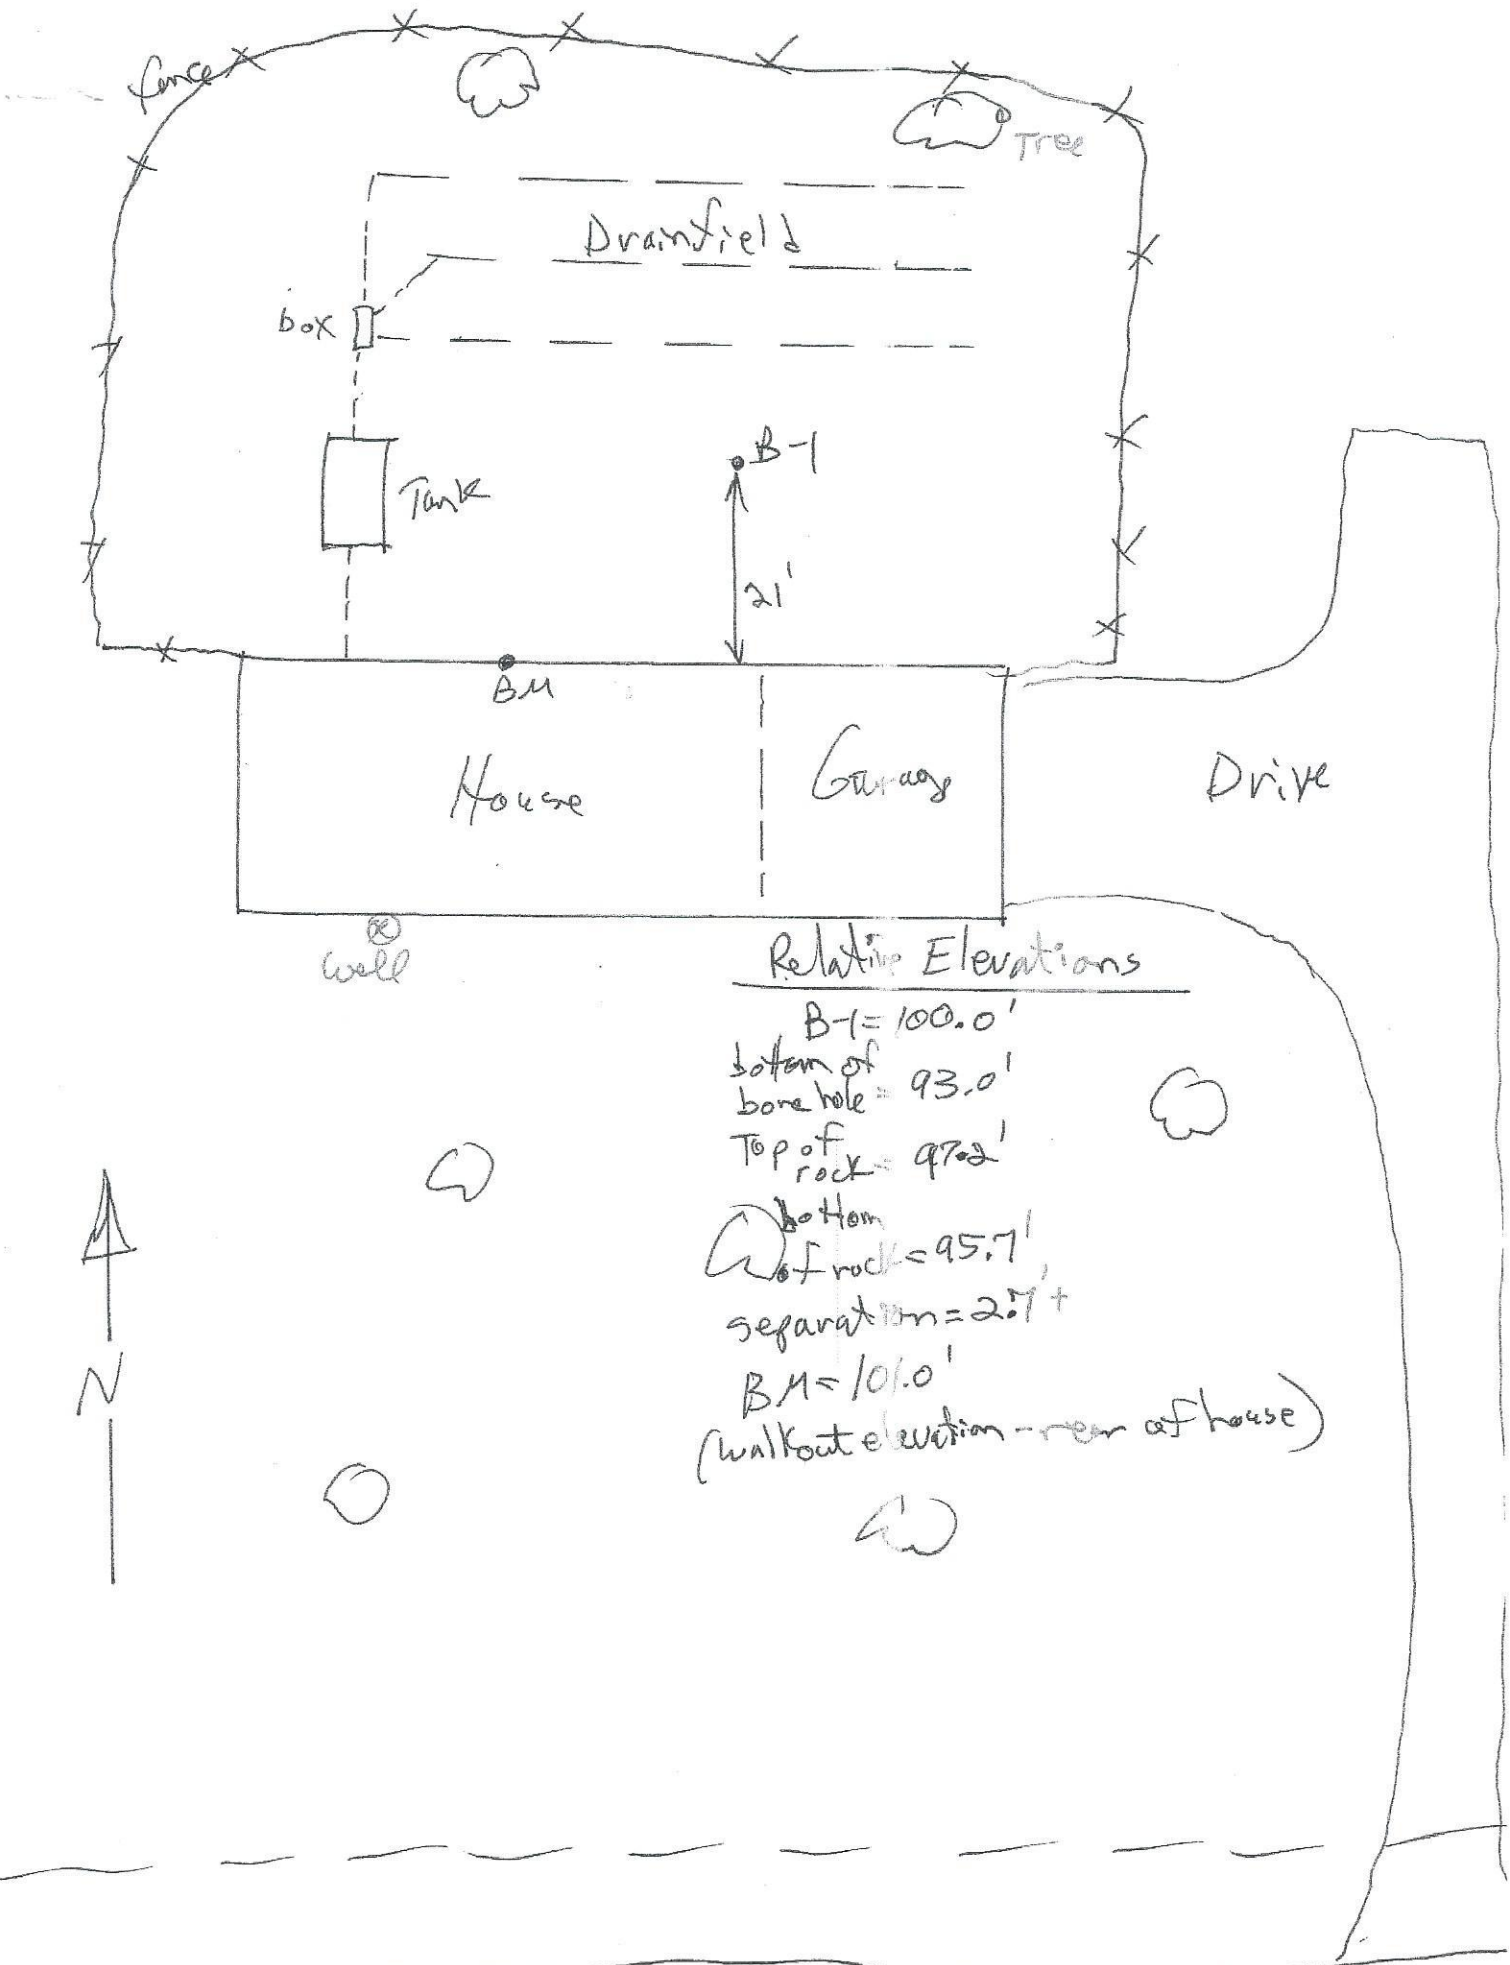 fence
Tree
Drainfield
box
B-1
Tank
21'
BM
House
Garage
Drive
well
Relative Elevations
B-1 = 100.0'
bottom of
bore hole = 93.0'
Top of
rock = 97.2'
bottom
of rock = 95.7'
separation = 2.7'+
BM = 101.0'
(walkout elevation - rear of house)
N